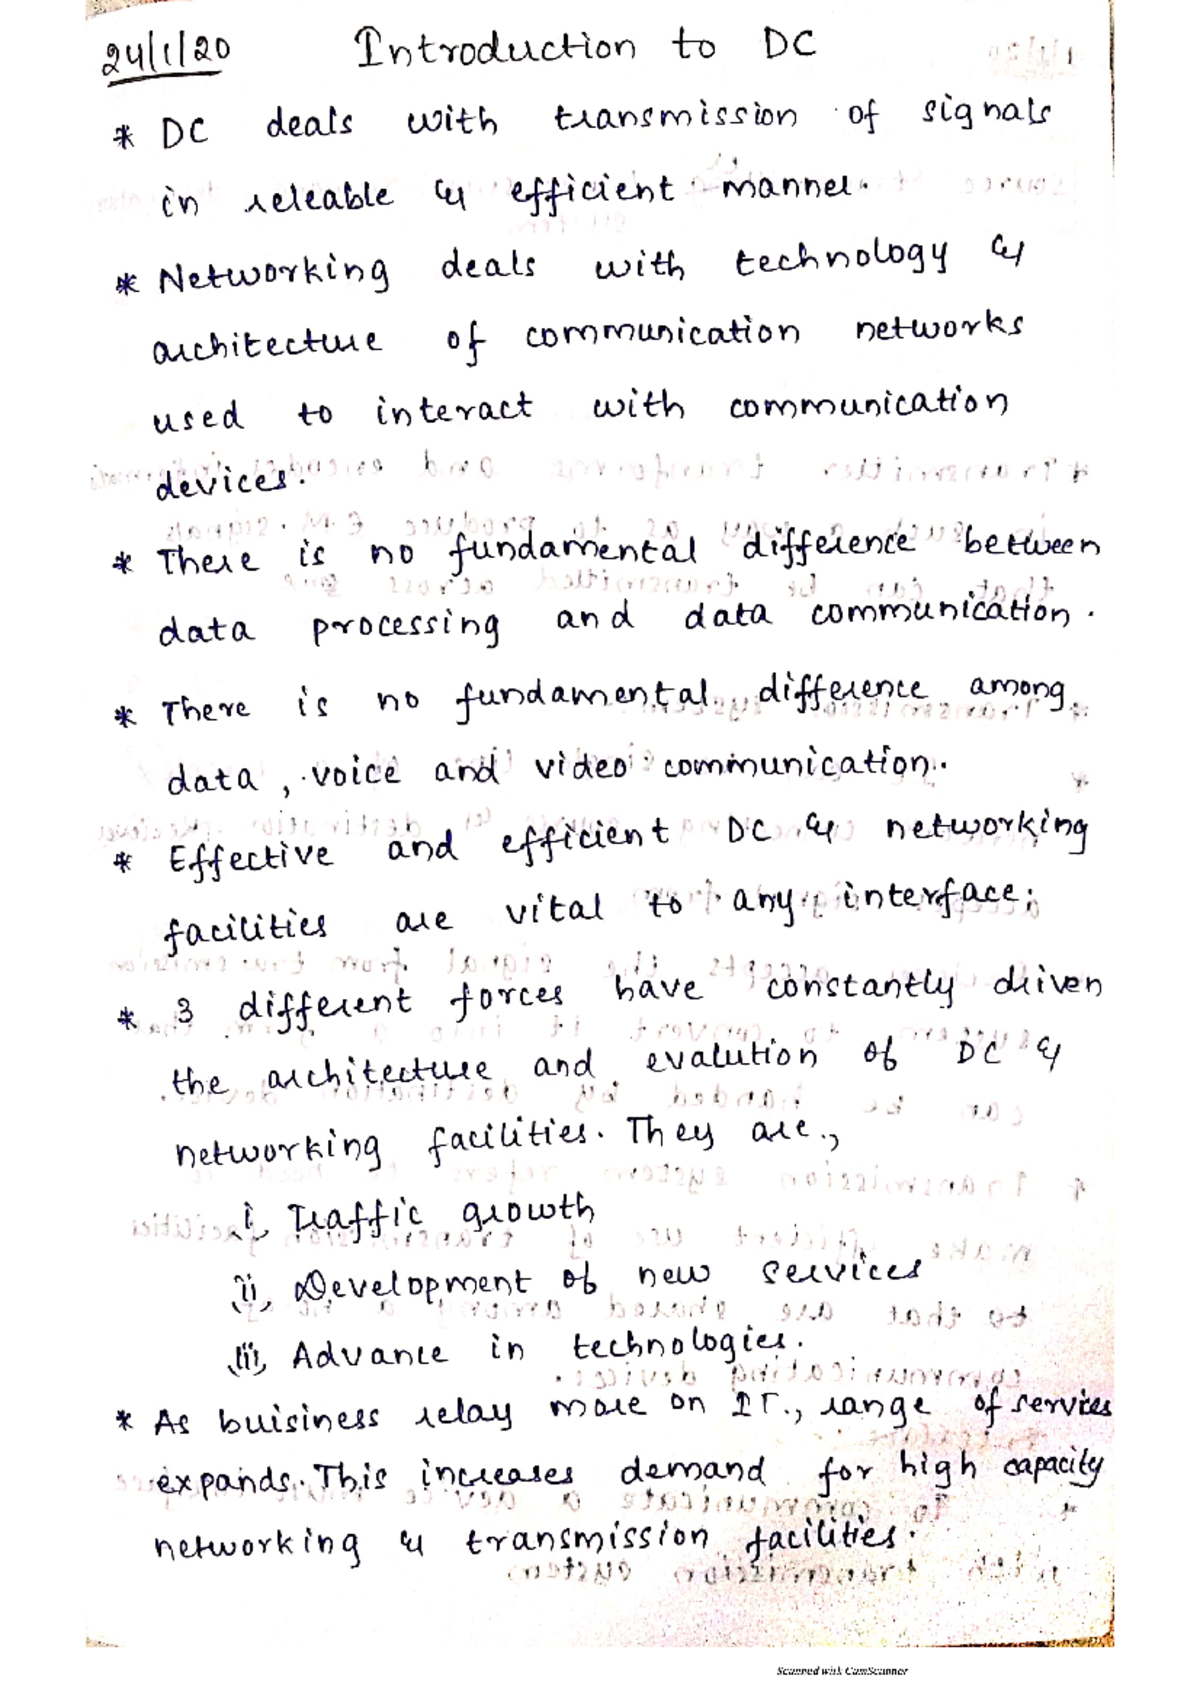 24/1/20 Introduction to DC
* DC deals with transmission of signals
in releable & efficient manner.
* Networking deals with technology &
architecture of communication networks
used to interact with communication
devices.
* There is no fundamental difference between
data processing and data communication.
* There is no fundamental difference among
data, voice and video communication.
* Effective and efficient DC & networking
facilities are vital to any interface;
* 3 different forces have constantly driven
the architecture and evalution of DC &
networking facilities. They are.,
i, Traffic growth
ii, Development of new services
iii, Advance in technologies.
* As buisiness relay more on IT., range of services
expands. This increases demand for high capacity
networking & transmission facilities.
Scanned with CamScanner